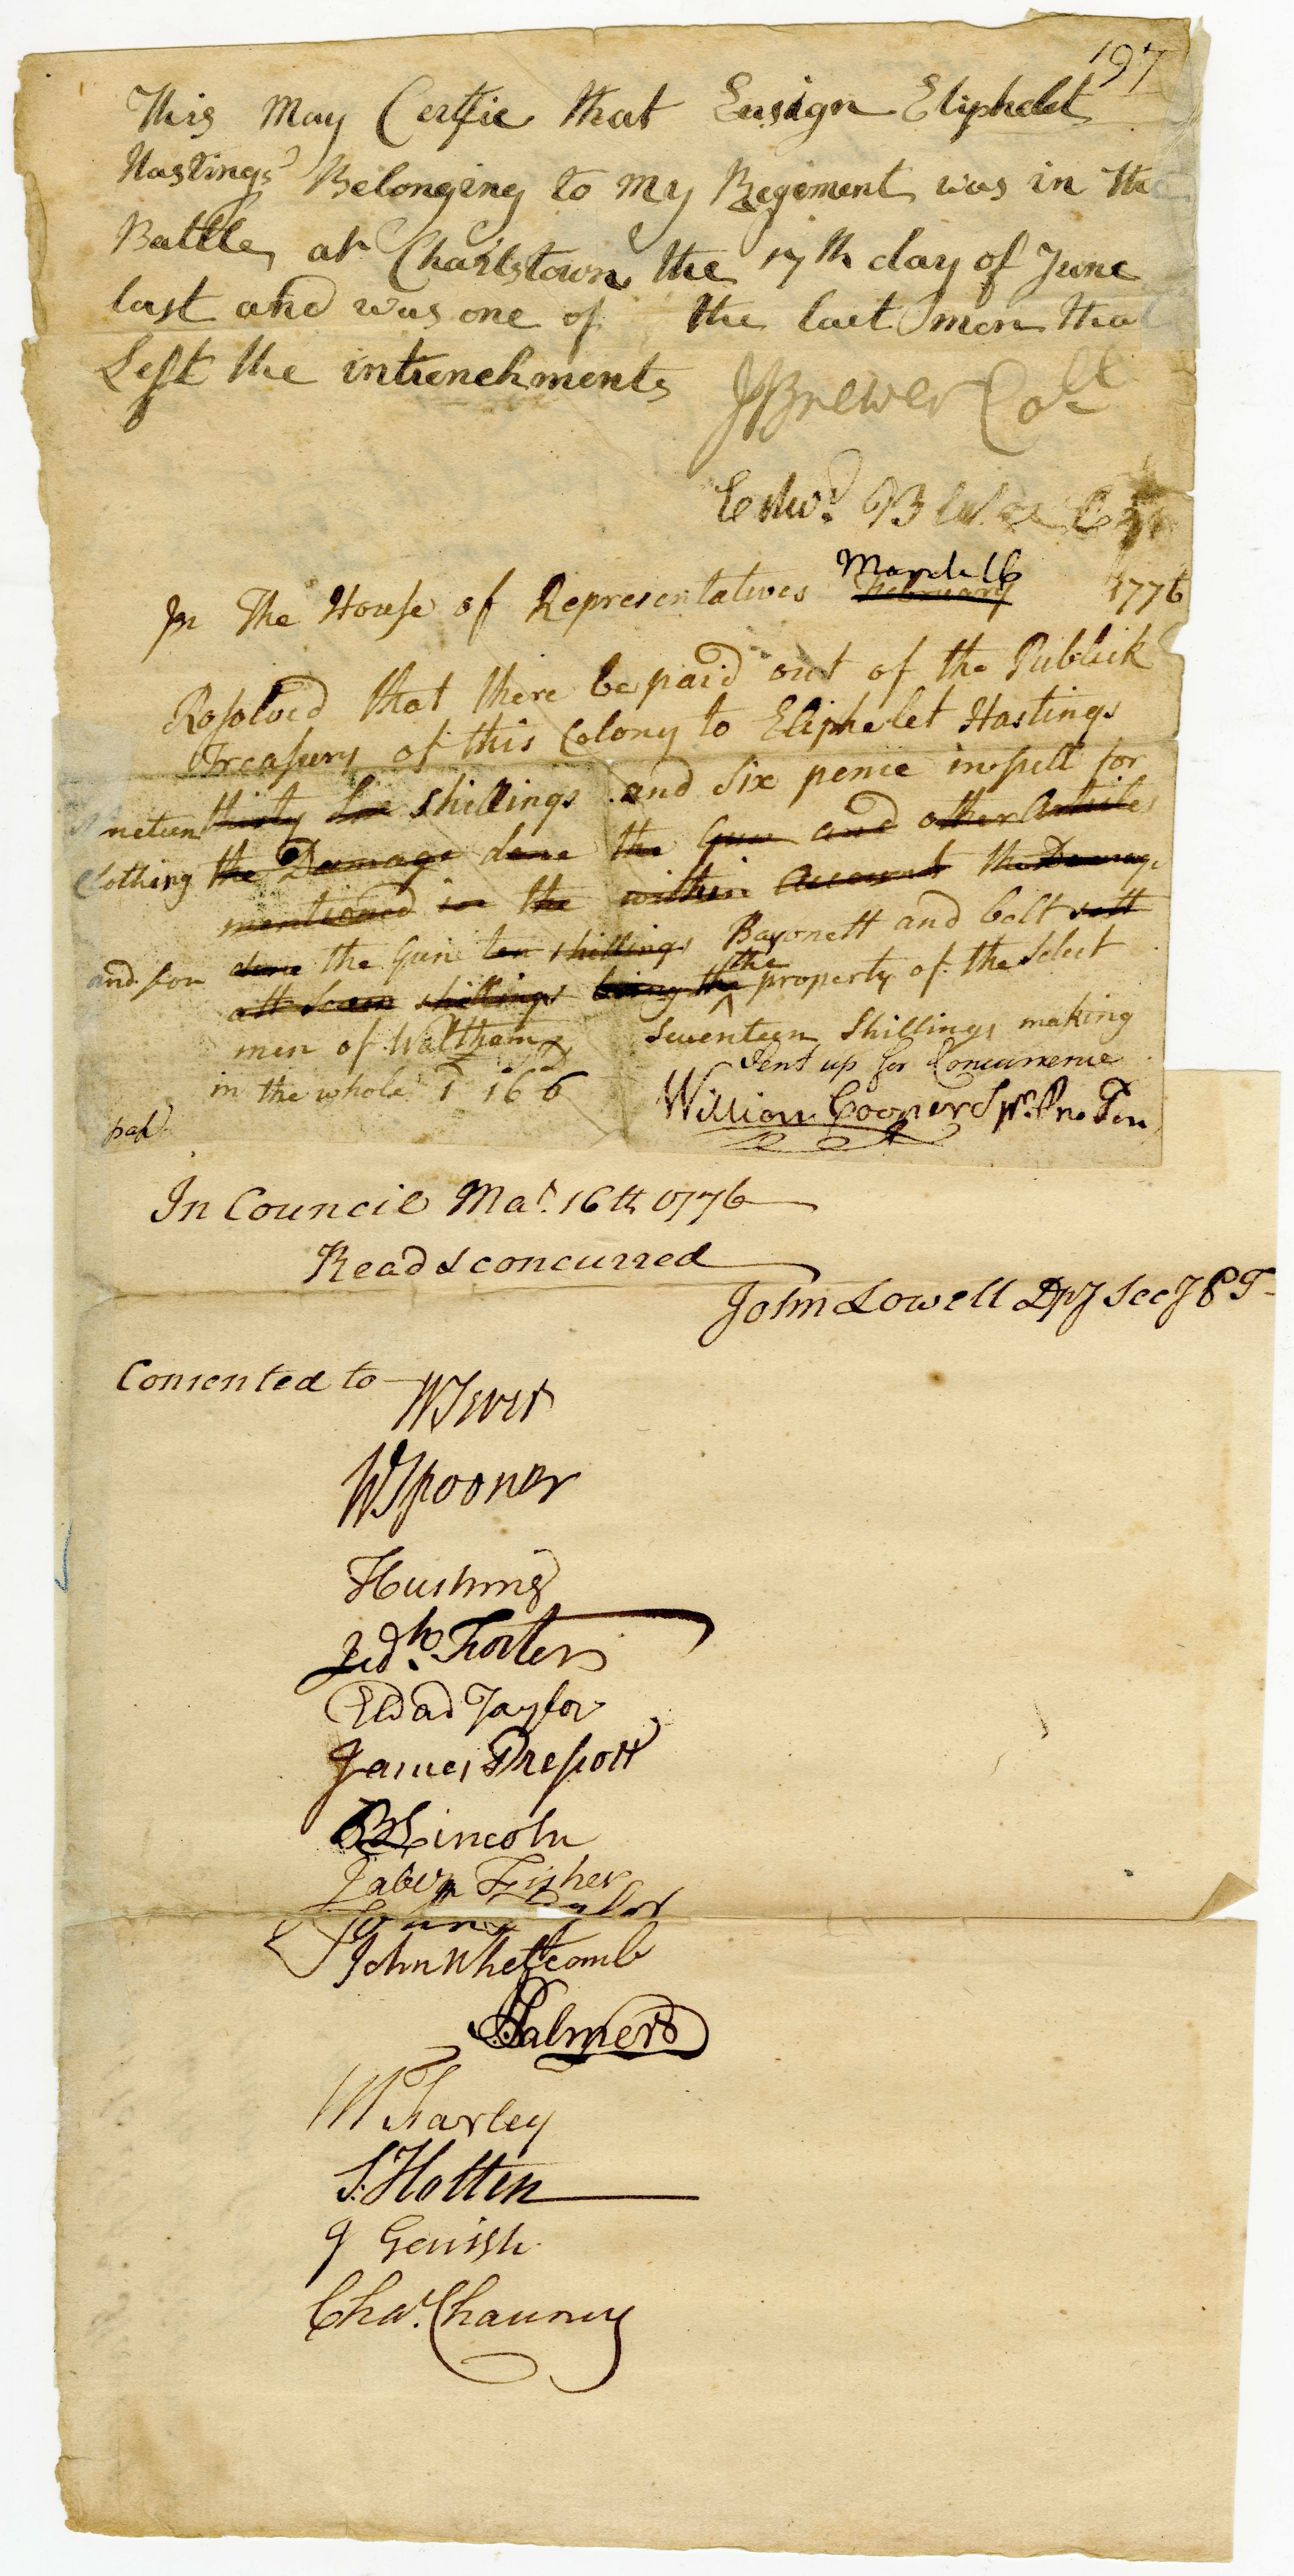 197
This May Certfie that Ensign Eliphelet
Hastings Belonging to my Regiment was in the
Battle at Charlstown the 17th day of June
last and was one of the last men that
Left the intrenchments
J Brewer Coll
Edwd
In The House of Representatives March 16 February 1776
Resolved that there be paid out of the Publick
Treasury of this Colony to Eliphelet Hastings
ninteen thirty shillings and six pence in full for
Clothing the Damage done the Gun and other Articles
mentioned in the within Account the Damage
and for done the Gun ten shillings Bayonett and belt
att Seven shillings being the the property of the Select
men of Waltham Seventeen Shillings making
in the whole 1 16 6 Sent up for Concurrence
William Cooper Spkr Pro Tem
paid
In Council Mar. 16th 1776
Read & concurred
John Lowell Dpy Secy P T
Consented to
W Sever
W Spooner
T Cushing
Jedh. Foster
Eldad Taylor
James Prescott
B Lincoln
Jabez Fisher
John Taylor
John Whetcomb
J Palmer
M Farley
S. Holten
J Gerrish
Chas. Chauncy